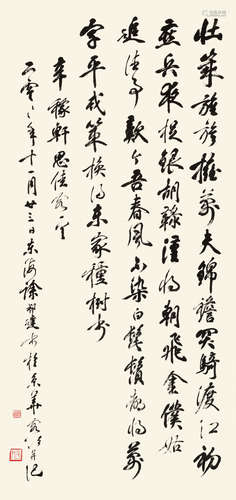 壯歲旌旗擁萬夫錦襜突騎渡江初
燕兵夜捉銀胡䩮漢箭朝飛金僕姑
追往事歎今吾春風不染白髭鬚却將萬
字平戎策換得東家種樹書
辛稼軒思佳客一首
年十一月廿三日東海徐邦達